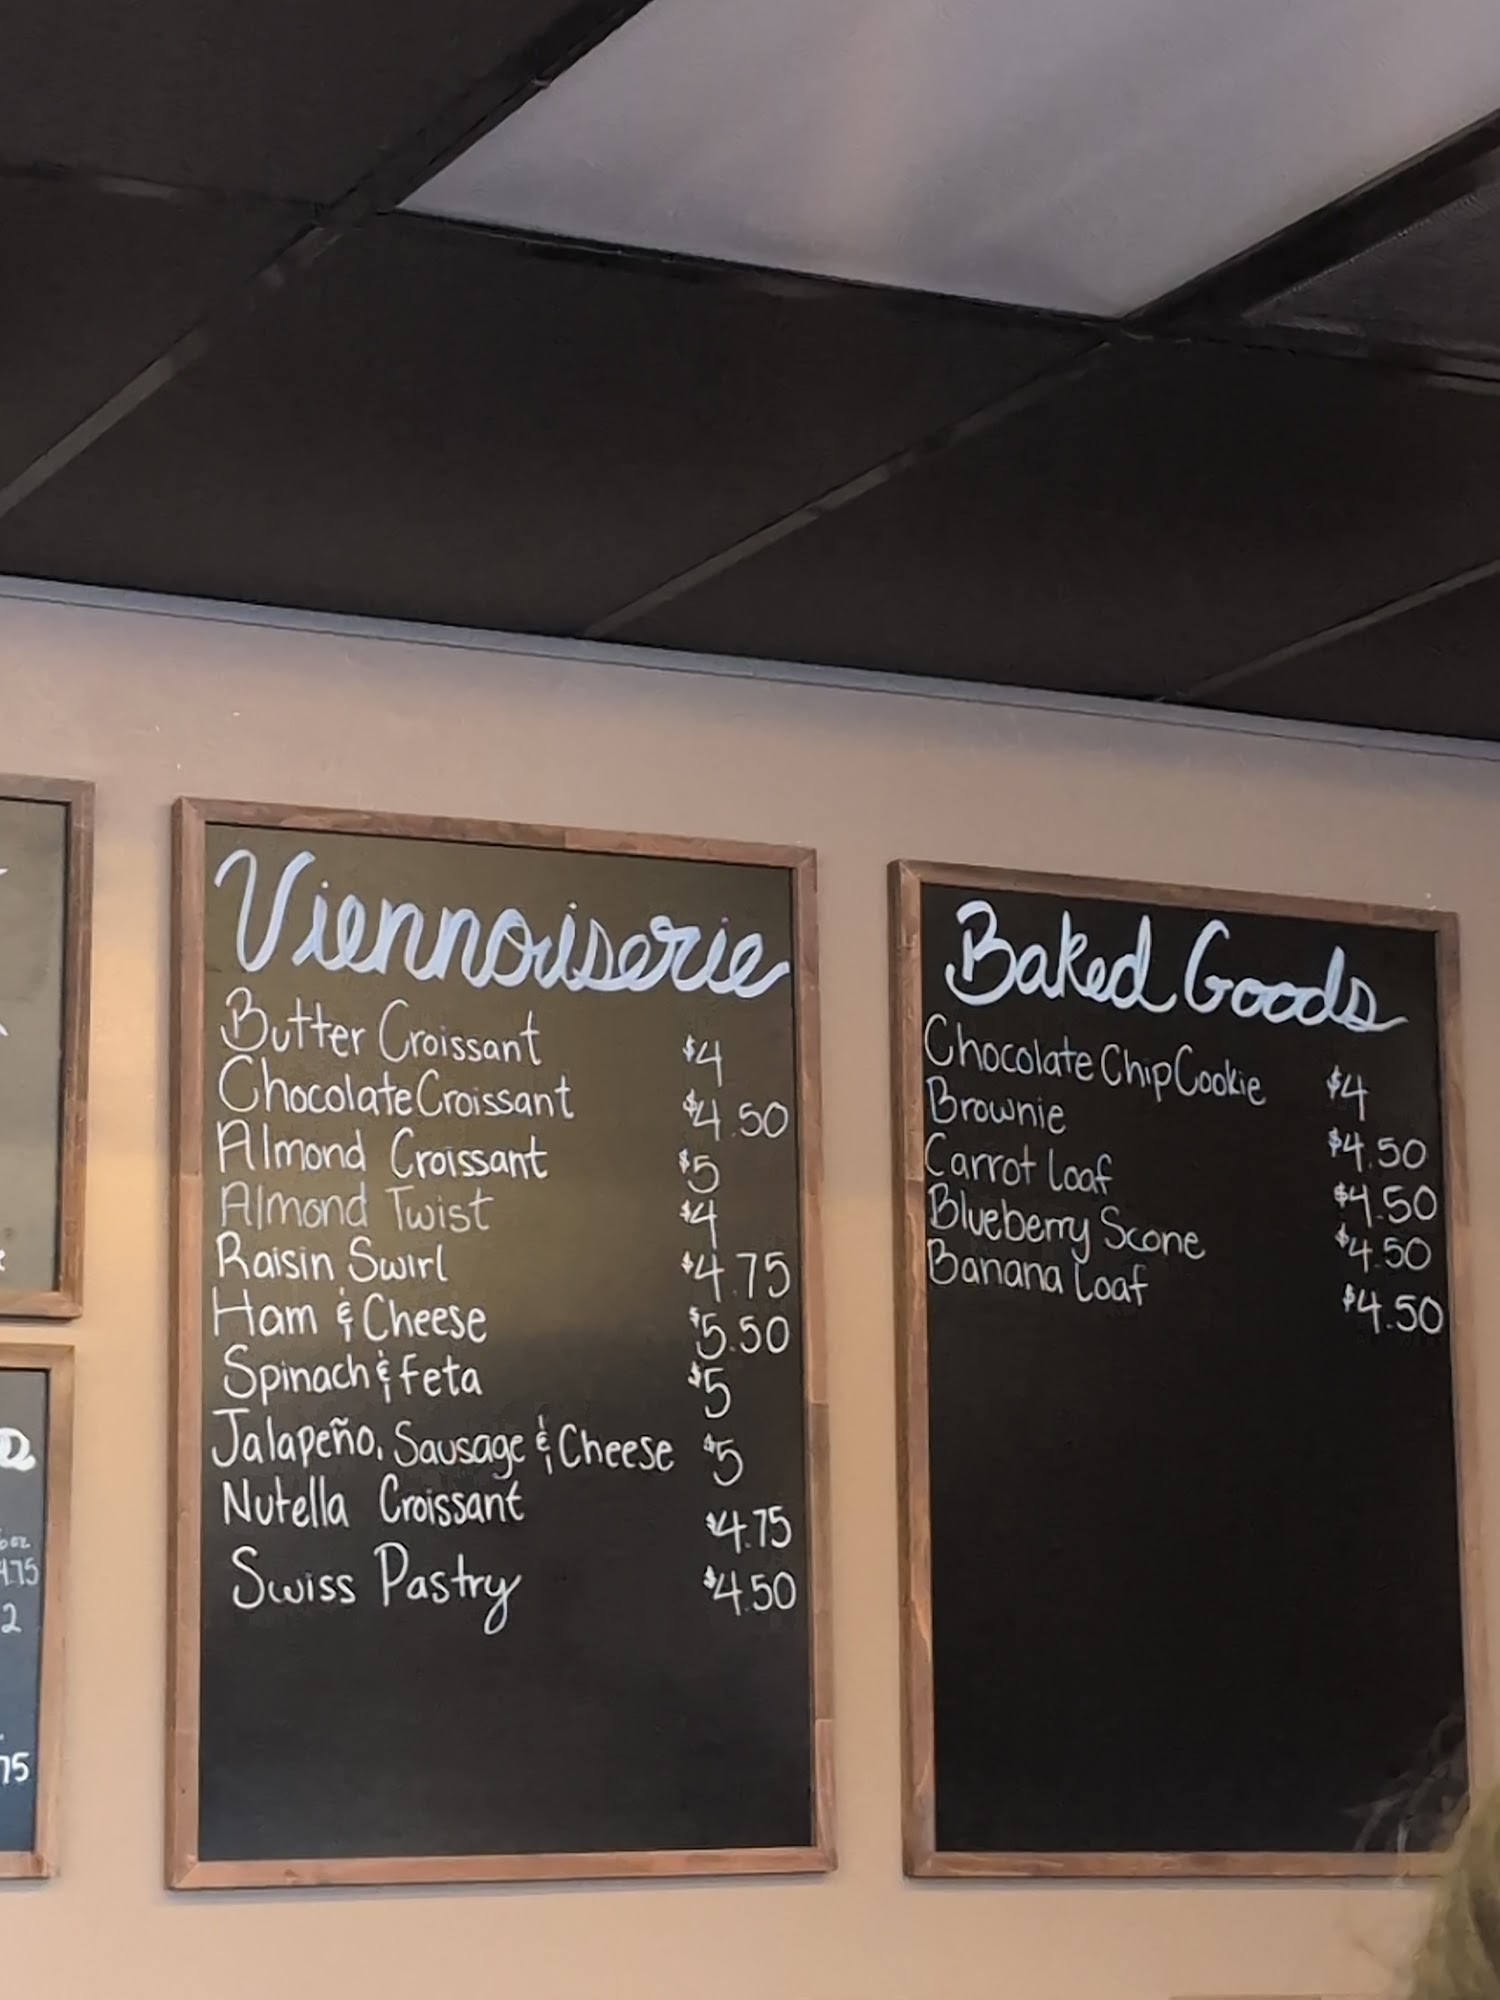 Viennoiserie
Butter Croissant $4
Chocolate Croissant $4.50
Almond Croissant $5
Almond Twist $4
Raisin Swirl $4.75
Ham & Cheese $5.50
Spinach & Feta $5
Jalapeño, Sausage & Cheese $5
Nutella Croissant $4.75
Swiss Pastry $4.50
Baked Goods
Chocolate Chip Cookie $4
Brownie $4.50
Carrot Loaf $4.50
Blueberry Scone $4.50
Banana Loaf $4.50